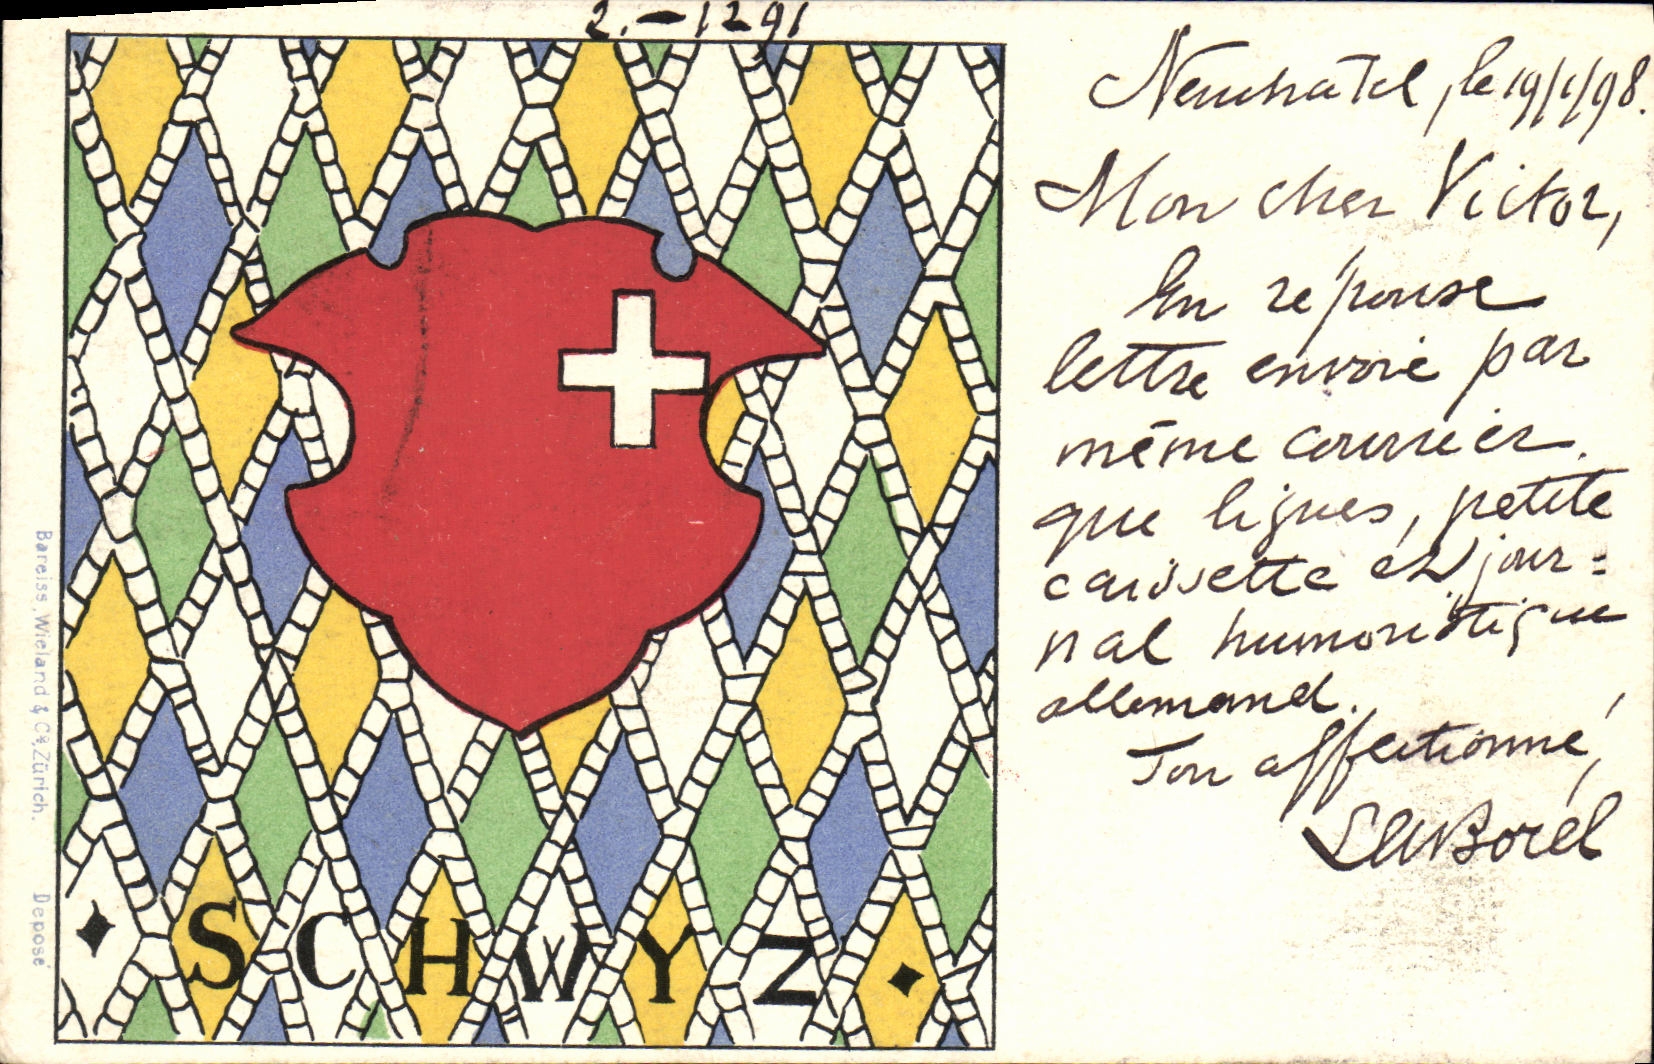 2. — 1291
Neuchatel, le 19/1/98.
Mon cher Victor,
En réponse
lettre envoie par
même courrier.
que ligues, petite
caissette et jour=
nal humoristique
allemand.
Ton affectionné,
Borel
SCHWYZ
Bareiss, Wieland & Cº, Zürich. Deposé